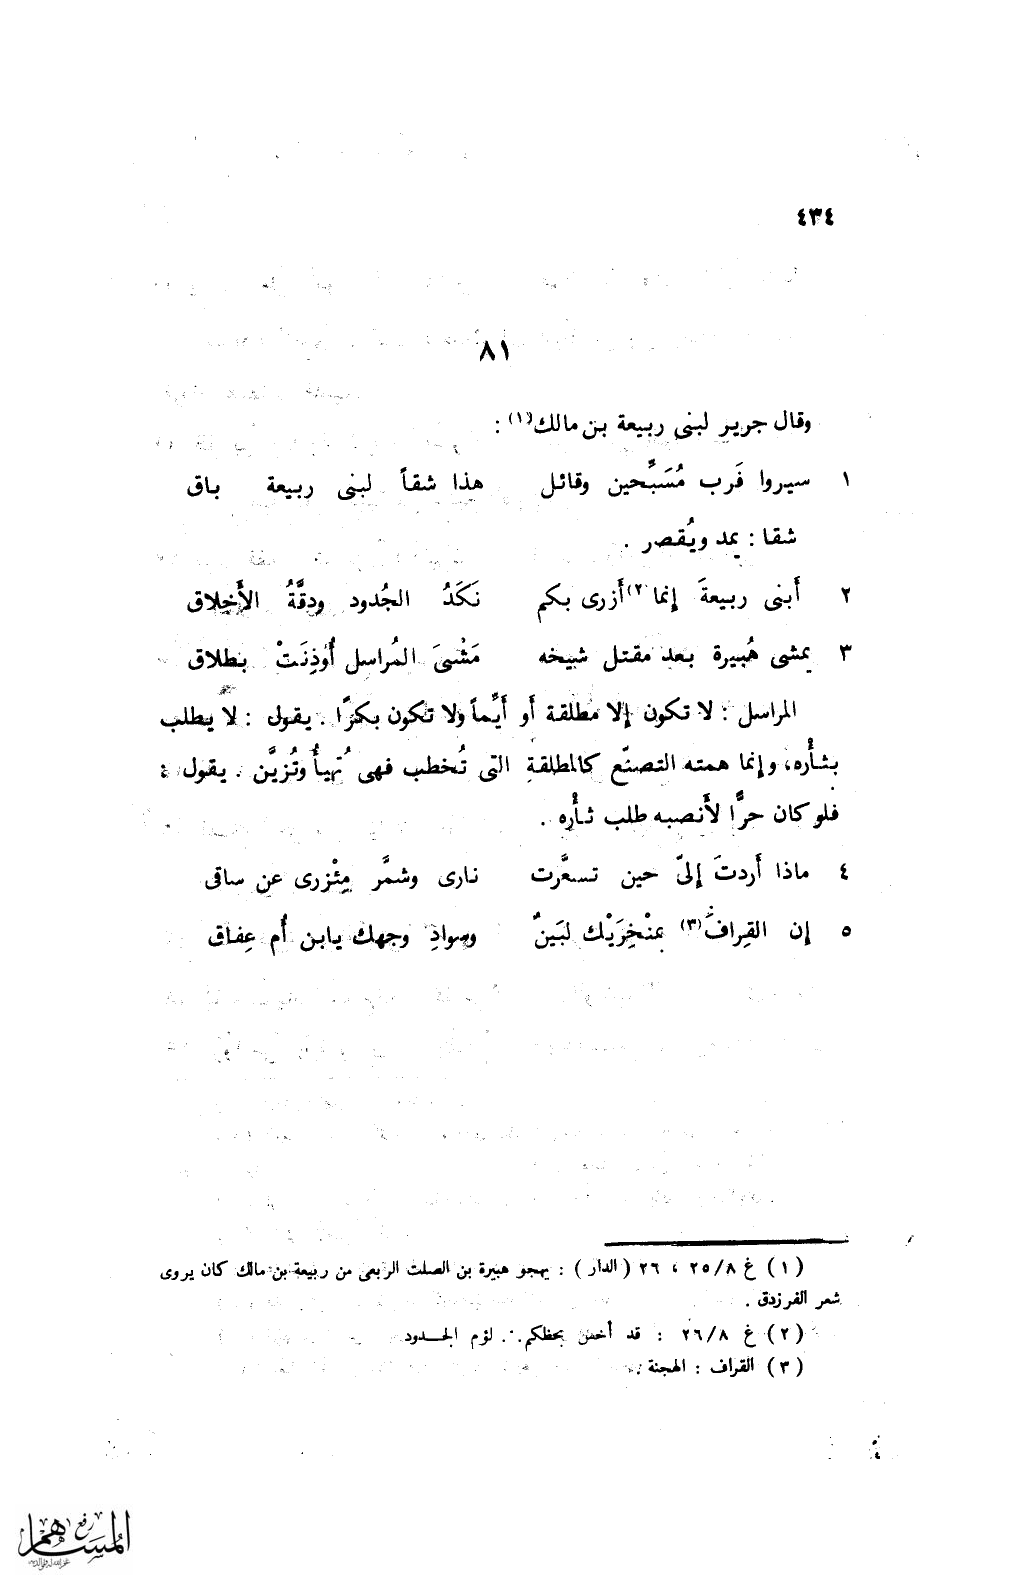 ٤٣٤
٨١
وقال جرير لبنى ربيعة بن مالك(١) :
١ سيروا فَرب مُسَبِّحين وقائل هذا شقاً لبنى ربيعة باق
شقا : يمد ويُقصر .
٢ أَبنى ربيعةَ إنما(٢) أَزرى بكم نَكَدُ الجُدود ودقَّةُ الأَخلاق
٣ يمشى هُبيرة بعد مقتل شيخه مَشْىَ المُراسل أُوذِنَتْ بطلاق
المراسل : لا تكون إلا مطلقة أو أَيِّماً ولا تكون بكرًا . يقول : لا يطلب
بثأْره، وإنما همته التصنّع كالمطلقةِ التى تُخطب فهى تُهيأُ وتُزيَّن . يقول :
فلو كان حرًّا لأَنصبه طلب ثأْره .
٤ ماذا أَردتَ إلىّ حين تسعَّرت نارى وشمَّر مِئْزرى عن ساقى
٥ إن القِرافَ(٣) بمنْخِرَيْك لبَينٌ وسوادِ وجهك يابن أُم عِفاق
(١) غ ٢٥/٨ ، ٢٦ (الدار) : يهجو هبيرة بن الصلت الربعى من ربيعة بن مالك كان يروى
شعر الفرزدق .
(٢) غ ٢٦/٨ : قد أخس بحظكم . . لؤم الجدود
(٣) القراف : الهجنة .